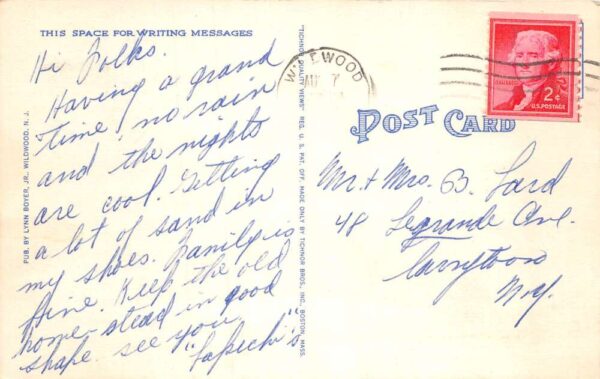 THIS SPACE FOR WRITING MESSAGES
Hi Folks.
Having a grand
time no rain
and the nights
are cool. Getting
a lot of sand in
my shoes. Family is
fine. Keep the old
home-stead in good
shape. see you.
PUB. BY LYNN BOYER, JR., WILDWOOD, N. J.
"TICHNOR QUALITY VIEWS" REG. U. S. PAT. OFF. MADE ONLY BY TICHNOR BROS., INC., BOSTON, MASS.
POST CARD
2¢
U.S. POSTAGE
Mr. + Mrs. B.
48 Legrande Ave.
Tarrytown
N.Y.